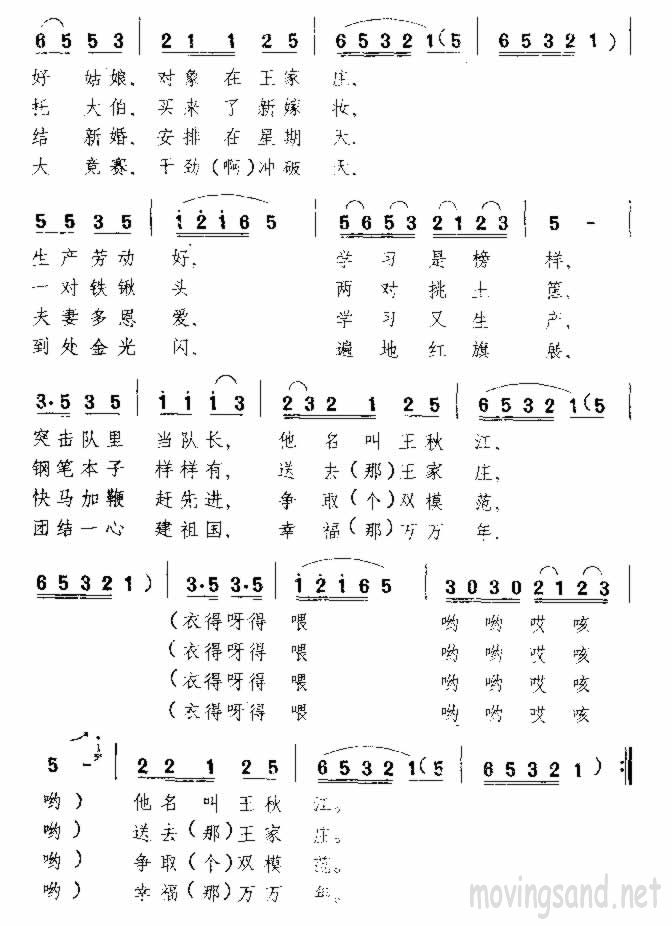 6 5 5 3 | 2 1 1 2 5 | 6 5 3 2 1 (5 | 6 5 3 2 1) |
好 姑娘, 对象在王家 庄,
托 大伯, 买来了新嫁 妆,
结 新婚, 安排在星期 天.
大 竞赛, 干劲(啊)冲破 天.
5 5 3 5 | 1 2 1 6 5 | 5 6 5 3 2 1 2 3 | 5 - |
生产劳动 好, 学习是榜 样,
一对铁锹 头 两对挑土 筐,
夫妻多恩 爱, 学习又生 产,
到处金光 闪, 遍地红旗 展,
3·5 3 5 | 1 1 1 3 | 2 3 2 1 2 5 | 6 5 3 2 1 (5 |
突击队里 当队长, 他 名叫王秋 江,
钢笔本子 样样有, 送 去(那)王家 庄,
快马加鞭 赶先进, 争 取(个)双模 范,
团结一心 建祖国, 幸 福(那)万万 年.
6 5 3 2 1) | 3·5 3·5 | 1 2 1 6 5 | 3 0 3 0 2 1 2 3 |
(衣得呀得 喂 哟 哟 哎 咳
(衣得呀得 喂 哟 哟 哎 咳
(衣得呀得 喂 哟 哟 哎 咳
(衣得呀得 喂 哟 哟 哎 咳
5 - | 2 2 1 2 5 | 6 5 3 2 1 (5 | 6 5 3 2 1) :||
哟) 他名叫王秋 江。
哟) 送去(那)王家 庄。
哟) 争取(个)双模 范。
哟) 幸福(那)万万 年。
movingsand.net